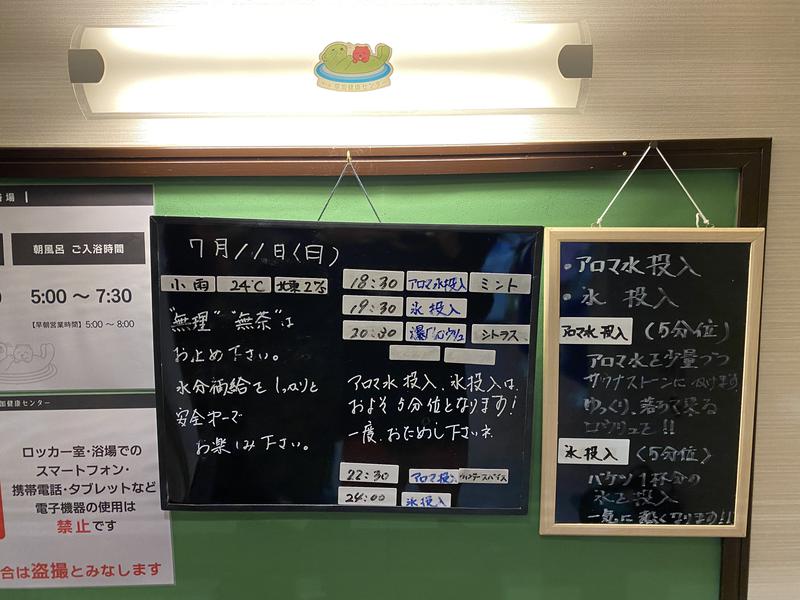 草加健康センター
場
朝風呂 ご入浴時間
5:00 〜 7:30
【早朝営業時間】5:00 〜 8:00
健康センター
ロッカー室・浴場での
スマートフォン・
携帯電話・タブレットなど
電子機器の使用は
禁止です
合は盗撮とみなします
7月11日(日)
小雨 24℃ 北東2%
"無理" "無茶"は
お止め下さい。
水分補給をしっかりと
安全第一で
お楽しみ下さい。
18:30 アロマ水投入 ミント
19:30 氷投入
20:30 爆風ロウリュ シトラス
アロマ水投入、氷投入は、
およそ5分位となります!
一度、おためし下さいネ
22:30 アロマ投入
24:00 氷投入
・アロマ水投入
・氷 投入
アロマ水投入 (5分位)
アロマ水を少量づつ
サウナストーンにかけます
ゆっくり、落ちて来る
ロウリュで!!
氷投入 (5分位)
バケツ1杯分の
氷を投入
一気に熱くなります!!